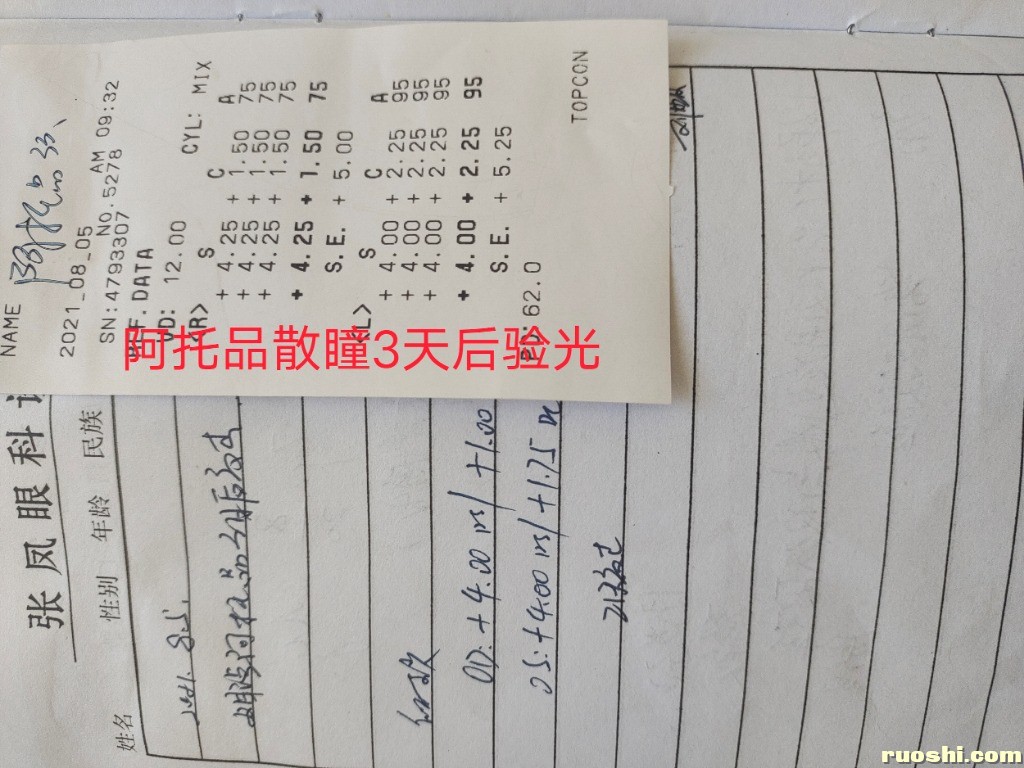 NAME
2021_08_05 AM 09:32
SN:4793307 NO.5278
REF.DATA
VD: 12.00 CYL: MIX
<R> S C A
+ 4.25 + 1.50 75
+ 4.25 + 1.50 75
+ 4.25 + 1.50 75
+ 4.25 + 1.50 75
S.E. + 5.00
<L> S C A
+ 4.00 + 2.25 95
+ 4.00 + 2.25 95
+ 4.00 + 2.25 95
+ 4.00 + 2.25 95
S.E. + 5.25
PD:62.0
TOPCON
阿托品散瞳3天后验光
张凤眼科
姓名 性别 年龄 民族
2021.8.5
OD:+4.00 DS/+1.00
OS:+4.00 DS/+1.75
ruoshi.com